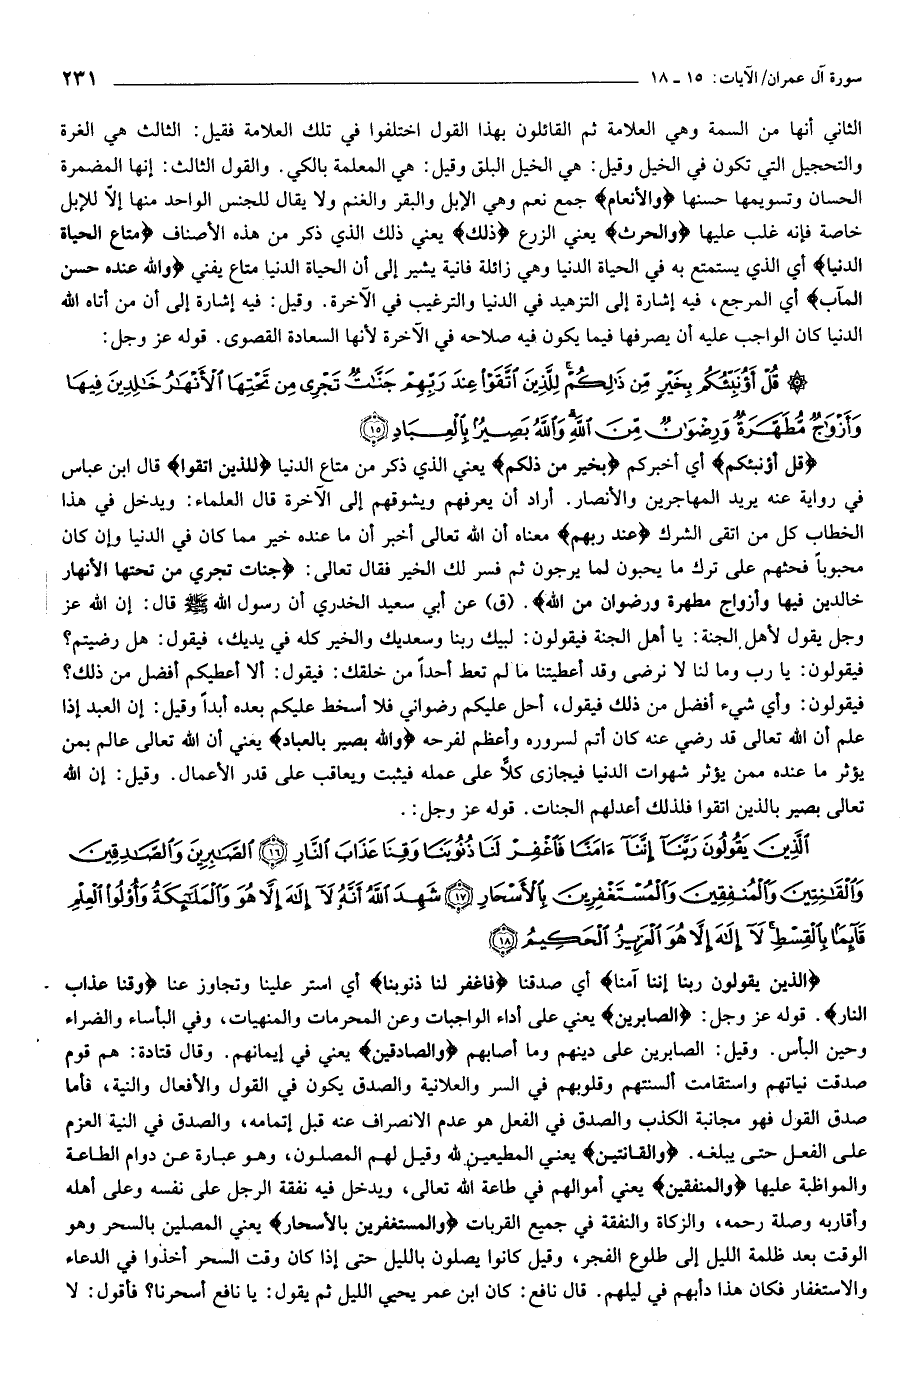 سورة آل عمران/ الآيات: ١٥ ـ ١٨ ٢٣١
الثاني أنها من السمة وهي العلامة ثم القائلون بهذا القول اختلفوا في تلك العلامة فقيل: الثالث هي الغرة
والتحجيل التي تكون في الخيل وقيل: هي الخيل البلق وقيل: هي المعلمة بالكي. والقول الثالث: إنها المضمرة
الحسان وتسويمها حسنها ﴿والأنعام﴾ جمع نعم وهي الإبل والبقر والغنم ولا يقال للجنس الواحد منها إلاّ للإبل
خاصة فإنه غلب عليها ﴿والحرث﴾ يعني الزرع ﴿ذلك﴾ يعني ذلك الذي ذكر من هذه الأصناف ﴿متاع الحياة
الدنيا﴾ أي الذي يستمتع به في الحياة الدنيا وهي زائلة فانية يشير إلى أن الحياة الدنيا متاع يفنى ﴿والله عنده حسن
المآب﴾ أي المرجع، فيه إشارة إلى التزهيد في الدنيا والترغيب في الآخرة. وقيل: فيه إشارة إلى أن من أتاه الله
الدنيا كان الواجب عليه أن يصرفها فيما يكون فيه صلاحه في الآخرة لأنها السعادة القصوى. قوله عز وجل:
۞ قُلْ أَؤُنَبِّئُكُم بِخَيْرٍ مِّن ذَٰلِكُمْ ۚ لِلَّذِينَ ٱتَّقَوْا۟ عِندَ رَبِّهِمْ جَنَّٰتٌ تَجْرِى مِن تَحْتِهَا ٱلْأَنْهَٰرُ خَٰلِدِينَ فِيهَا
وَأَزْوَٰجٌ مُّطَهَّرَةٌ وَرِضْوَٰنٌ مِّنَ ٱللَّهِ ۗ وَٱللَّهُ بَصِيرٌۢ بِٱلْعِبَادِ ﴿١٥﴾
﴿قل أؤنبئكم﴾ أي أخبركم ﴿بخير من ذلكم﴾ يعني الذي ذكر من متاع الدنيا ﴿للذين اتقوا﴾ قال ابن عباس
في رواية عنه يريد المهاجرين والأنصار. أراد أن يعرفهم ويشوقهم إلى الآخرة قال العلماء: ويدخل في هذا
الخطاب كل من اتقى الشرك ﴿عند ربهم﴾ معناه أن الله تعالى أخبر أن ما عنده خير مما كان في الدنيا وإن كان
محبوباً فحثهم على ترك ما يحبون لما يرجون ثم فسر لك الخير فقال تعالى: ﴿جنات تجري من تحتها الأنهار
خالدين فيها وأزواج مطهرة ورضوان من الله﴾. (ق) عن أبي سعيد الخدري أن رسول الله ﷺ قال: إن الله عز
وجل يقول لأهل الجنة: يا أهل الجنة فيقولون: لبيك ربنا وسعديك والخير كله في يديك، فيقول: هل رضيتم؟
فيقولون: يا رب وما لنا لا نرضى وقد أعطيتنا ما لم تعط أحداً من خلقك: فيقول: ألا أعطيكم أفضل من ذلك؟
فيقولون: وأي شيء أفضل من ذلك فيقول، أحل عليكم رضواني فلا أسخط عليكم بعده أبداً وقيل: إن العبد إذا
علم أن الله تعالى قد رضي عنه كان أتم لسروره وأعظم لفرحه ﴿والله بصير بالعباد﴾ يعني أن الله تعالى عالم بمن
يؤثر ما عنده ممن يؤثر شهوات الدنيا فيجازى كلاًّ على عمله فيثبت ويعاقب على قدر الأعمال. وقيل: إن الله
تعالى بصير بالذين اتقوا فلذلك أعدلهم الجنات. قوله عز وجل:.
ٱلَّذِينَ يَقُولُونَ رَبَّنَآ إِنَّنَآ ءَامَنَّا فَٱغْفِرْ لَنَا ذُنُوبَنَا وَقِنَا عَذَابَ ٱلنَّارِ ﴿١٦﴾ ٱلصَّٰبِرِينَ وَٱلصَّٰدِقِينَ
وَٱلْقَٰنِتِينَ وَٱلْمُنفِقِينَ وَٱلْمُسْتَغْفِرِينَ بِٱلْأَسْحَارِ ﴿١٧﴾ شَهِدَ ٱللَّهُ أَنَّهُۥ لَآ إِلَٰهَ إِلَّا هُوَ وَٱلْمَلَٰٓئِكَةُ وَأُو۟لُوا۟ ٱلْعِلْمِ
قَآئِمًۢا بِٱلْقِسْطِ ۚ لَآ إِلَٰهَ إِلَّا هُوَ ٱلْعَزِيزُ ٱلْحَكِيمُ ﴿١٨﴾
﴿الذين يقولون ربنا إننا آمنا﴾ أي صدقنا ﴿فاغفر لنا ذنوبنا﴾ أي استر علينا وتجاوز عنا ﴿وقنا عذاب
النار﴾. قوله عز وجل: ﴿الصابرين﴾ يعني على أداء الواجبات وعن المحرمات والمنهيات، وفي البأساء والضراء
وحين البأس. وقيل: الصابرين على دينهم وما أصابهم ﴿والصادقين﴾ يعني في إيمانهم. وقال قتادة: هم قوم
صدقت نياتهم واستقامت ألسنتهم وقلوبهم في السر والعلانية والصدق يكون في القول والأفعال والنية، فأما
صدق القول فهو مجانبة الكذب والصدق في الفعل هو عدم الانصراف عنه قبل إتمامه، والصدق في النية العزم
على الفعل حتى يبلغه. ﴿والقانتين﴾ يعني المطيعين لله وقيل لهم المصلون، وهو عبارة عن دوام الطاعة
والمواظبة عليها ﴿والمنفقين﴾ يعني أموالهم في طاعة الله تعالى، ويدخل فيه نفقة الرجل على نفسه وعلى أهله
وأقاربه وصلة رحمه، والزكاة والنفقة في جميع القربات ﴿والمستغفرين بالأسحار﴾ يعني المصلين بالسحر وهو
الوقت بعد ظلمة الليل إلى طلوع الفجر، وقيل كانوا يصلون بالليل حتى إذا كان وقت السحر أخذوا في الدعاء
والاستغفار فكان هذا دأبهم في ليلهم. قال نافع: كان ابن عمر يحيي الليل ثم يقول: يا نافع أسحرنا؟ فأقول: لا